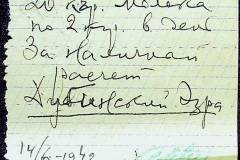 20 кр. молока
по 2 кр. в день
За наличный
расчет
Дубинский Эзра
14/ -1942